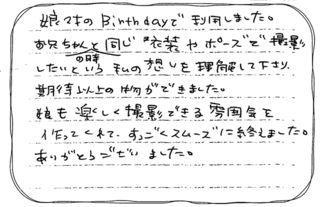 娘1才のBirthdayで利用しました。
お兄ちゃんと同じ衣装やポーズで撮影
の時
したいという私の想いを理解して下さり、
期待以上の物ができました。
娘も楽しく撮影できる雰囲気を
作ってくれて、すっごくスムーズに終えました。
ありがとうございました。